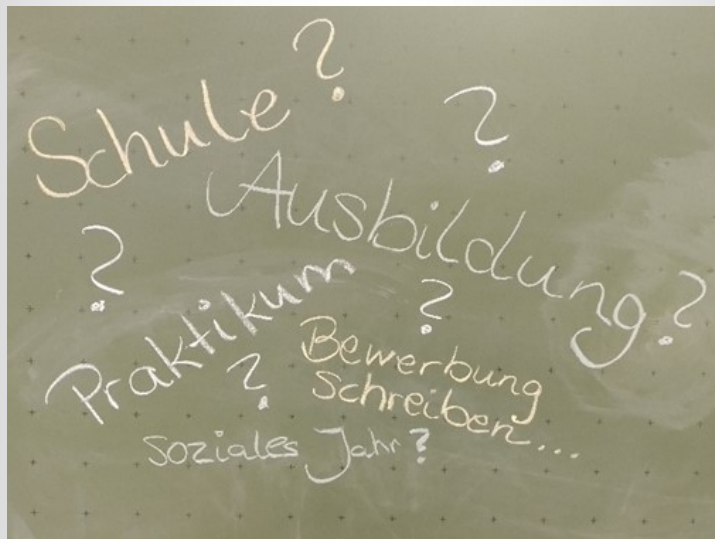 Schule?
?
Ausbildung?
?
Praktikum
?
?
Bewerbung
schreiben...
soziales Jahr?